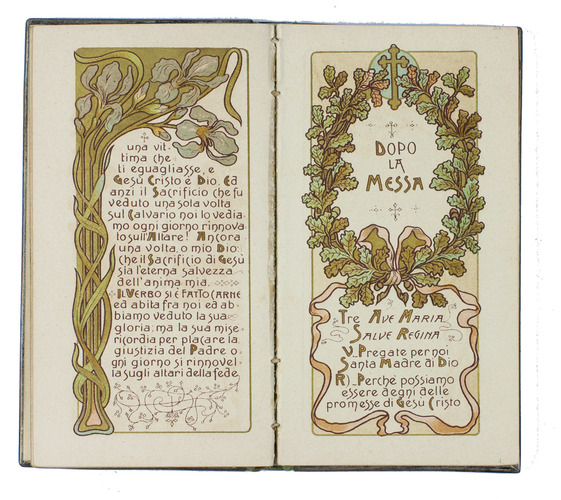 una vit-
tima che
ti eguagliasse, e
Gesù Cristo è Dio. Ed
anzi il Sacrificio che fu
veduto una sola volta
sul Calvario noi lo vedia-
mo ogni giorno rinnova-
to sull'Altare! Ancora
una volta, o mio Dio,
che il Sacrificio di Gesù
sia l'eterna salvezza
dell'anima mia.
Il Verbo si è fatto carne
ed abita fra noi ed ab-
biamo veduto la sua
gloria; ma la sua mise-
ricordia per placare la
giustizia del Padre o-
gni giorno si rinnovel-
la sugli altari della fede.
Dopo
la
Messa
Tre Ave Maria
Salve Regina
V. Pregate per noi
Santa Madre di Dio
R). Perchè possiamo
essere degni delle
promesse di Gesù Cristo